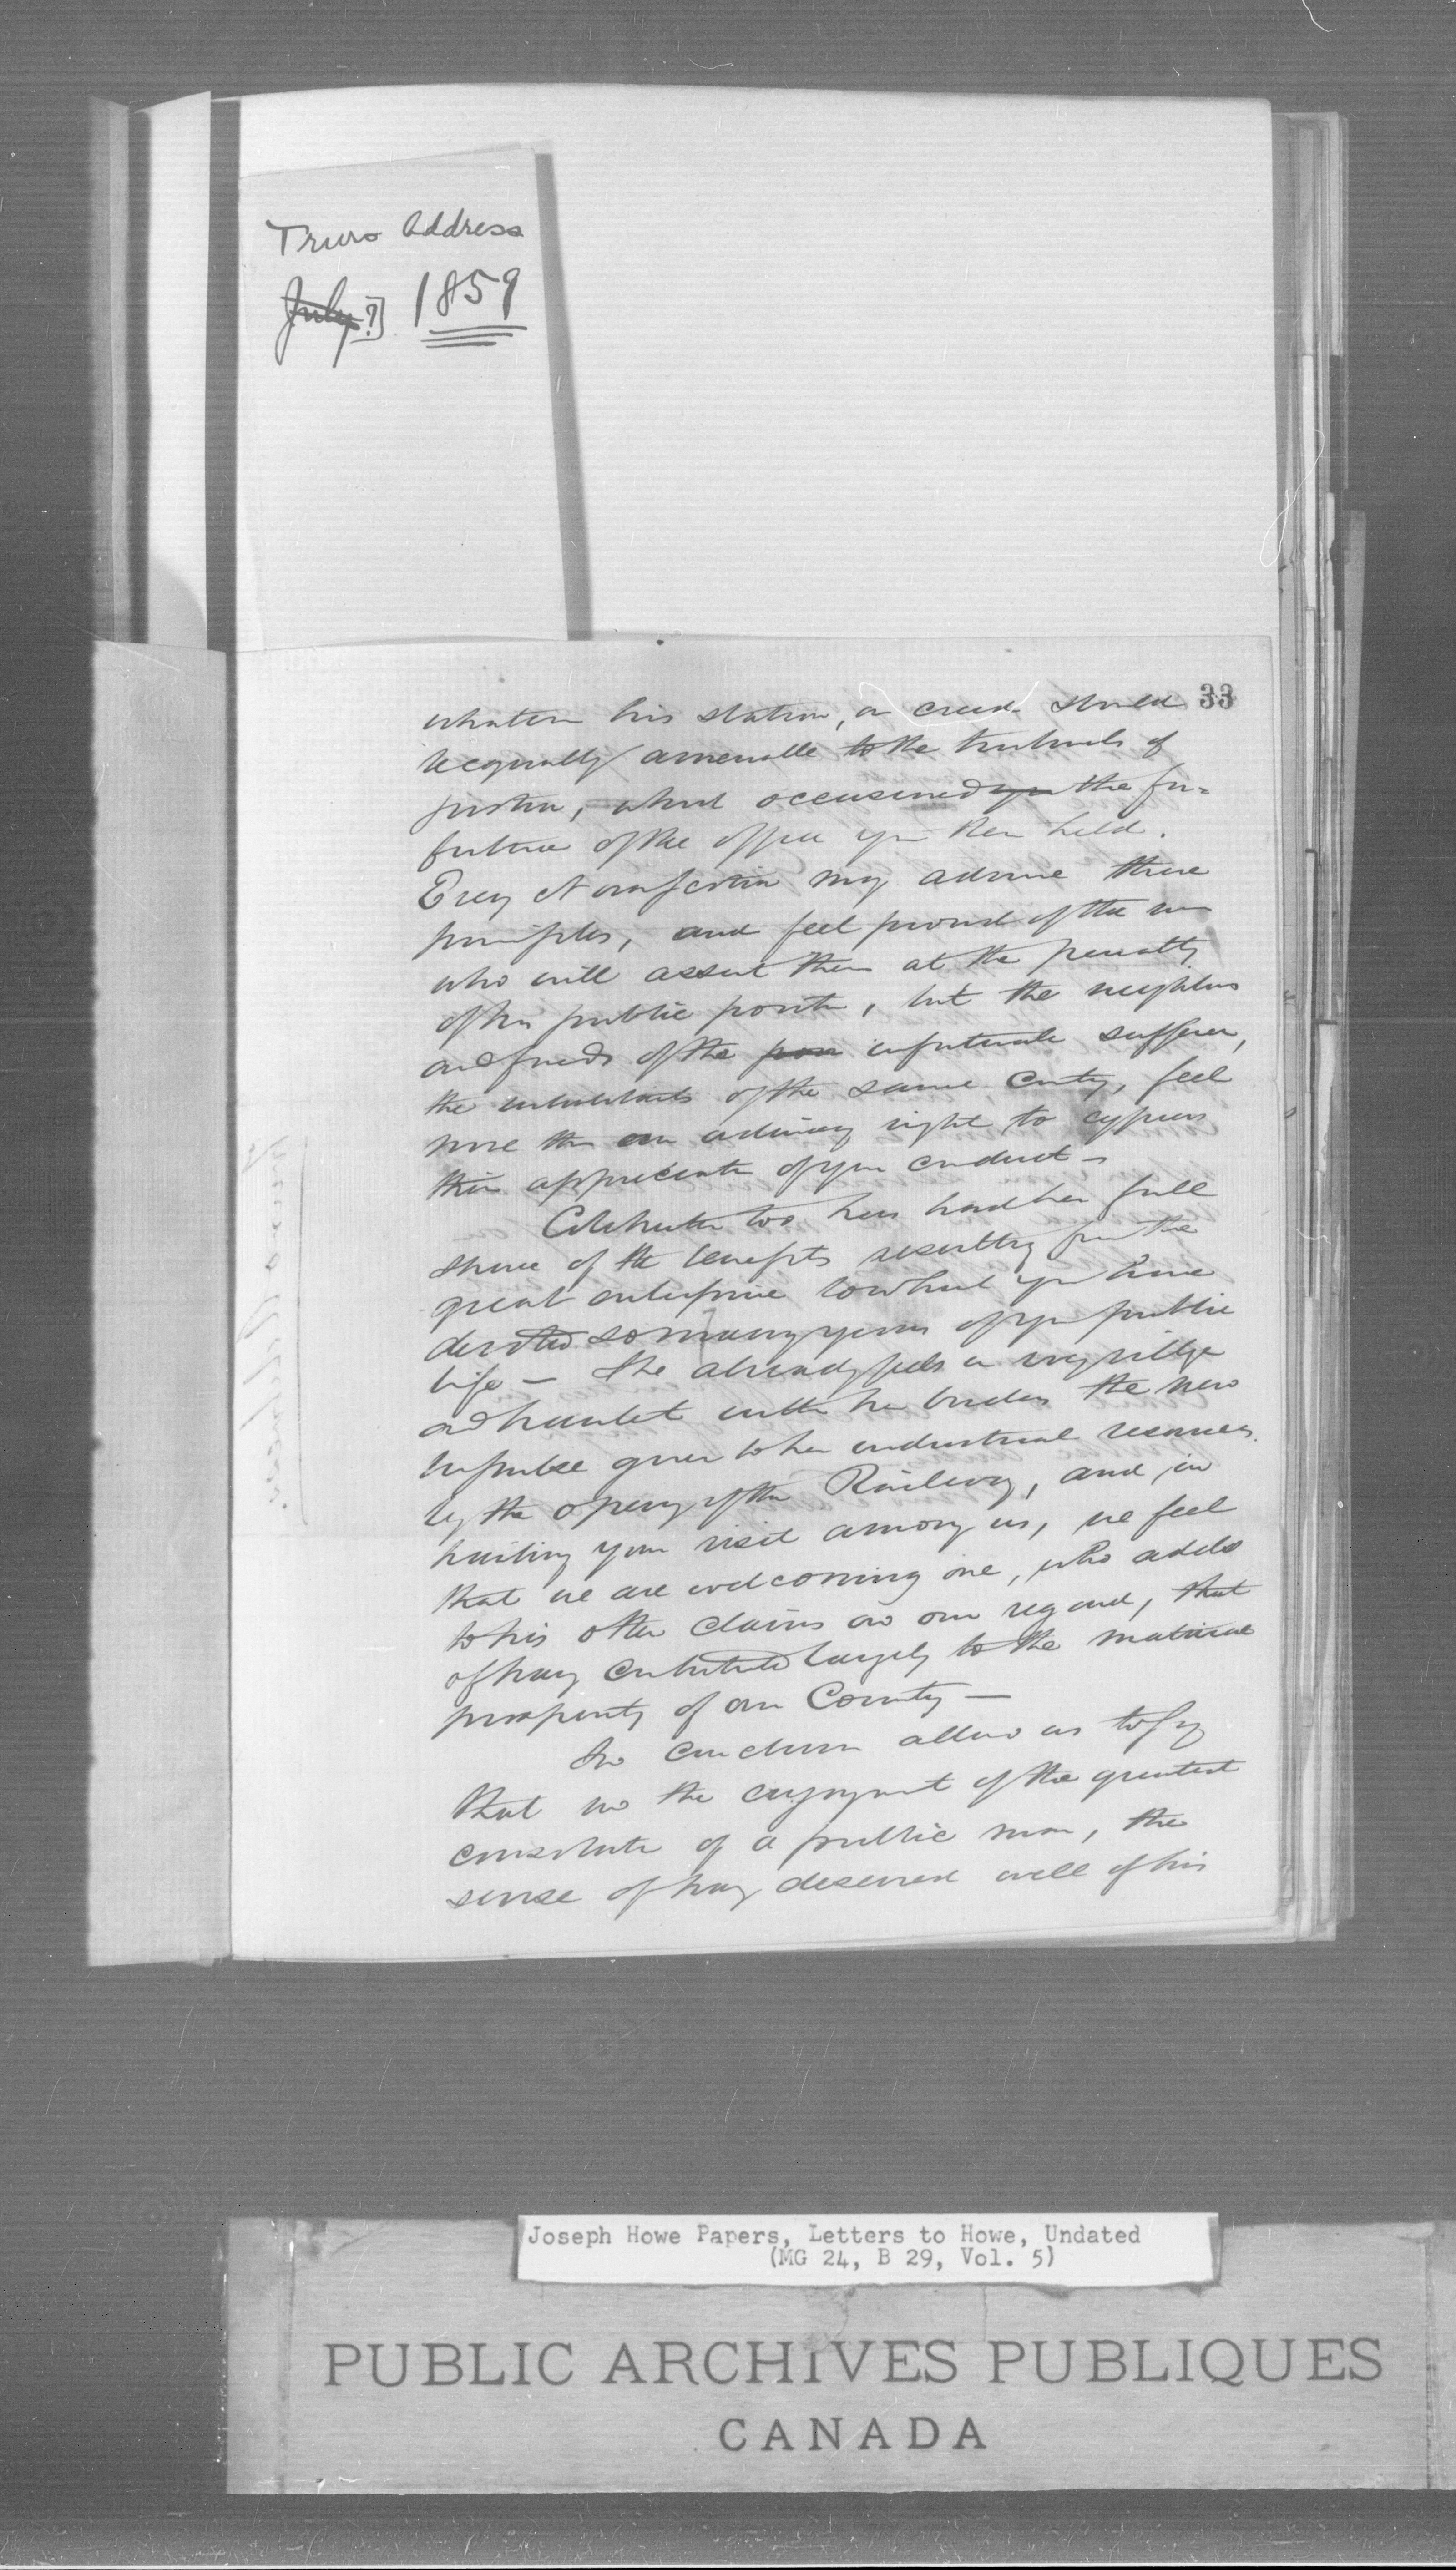 Truro Address
July ?] 1859
33
whatever his station, or creed should
be equally amenable to the tribunals of
justice, which occasioned you the for=
feiture of the office you then held.
Every Novascotian may admire these
principles, and feel proud of the man
who will assert them at the penalty
of his public position, but the neighbors
and friends of the poor unfortunate sufferer,
the inhabitants of the same County, feel
more than an ordinary right to express
their appreciation of your conduct –
Colchester too has had her full
share of the benefits resulting from the
great enterprise to which you have
devoted so many years of your public
life – She already feels in every village
and hamlet within her borders the new
impulse given to her industrial resources
by the opening of the Railway, and in
hailing your visit among us, we feel
that we are welcoming one, who adds
to his other claims on our regard, that
of having contributed largely to the material
prosperity of our County –
In conclusion allow us to say
that in the enjoyment of the greatest
consolation of a public man, the
sense of having deserved well of his
Joseph Howe Papers, Letters to Howe, Undated
(MG 24, B 29, Vol. 5)
PUBLIC ARCHIVES PUBLIQUES
CANADA